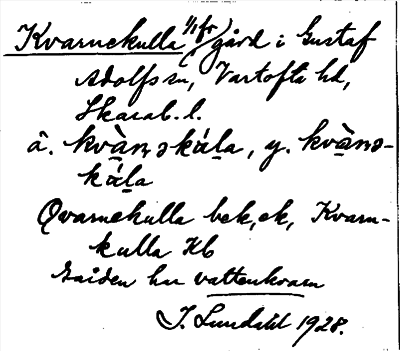 Kvarnekulla 1/1 fr gård i Gustaf
Adolfs sn, Vartofta hd,
Skarab. l.
ä. kvà̱nə̣skála̱, y. kvà̱nə-
kála̱
Qvarnekulla bek, ek, Kvarn-
kulla Kb
Gården har vattenkvarn
J. Lundahl 1928.